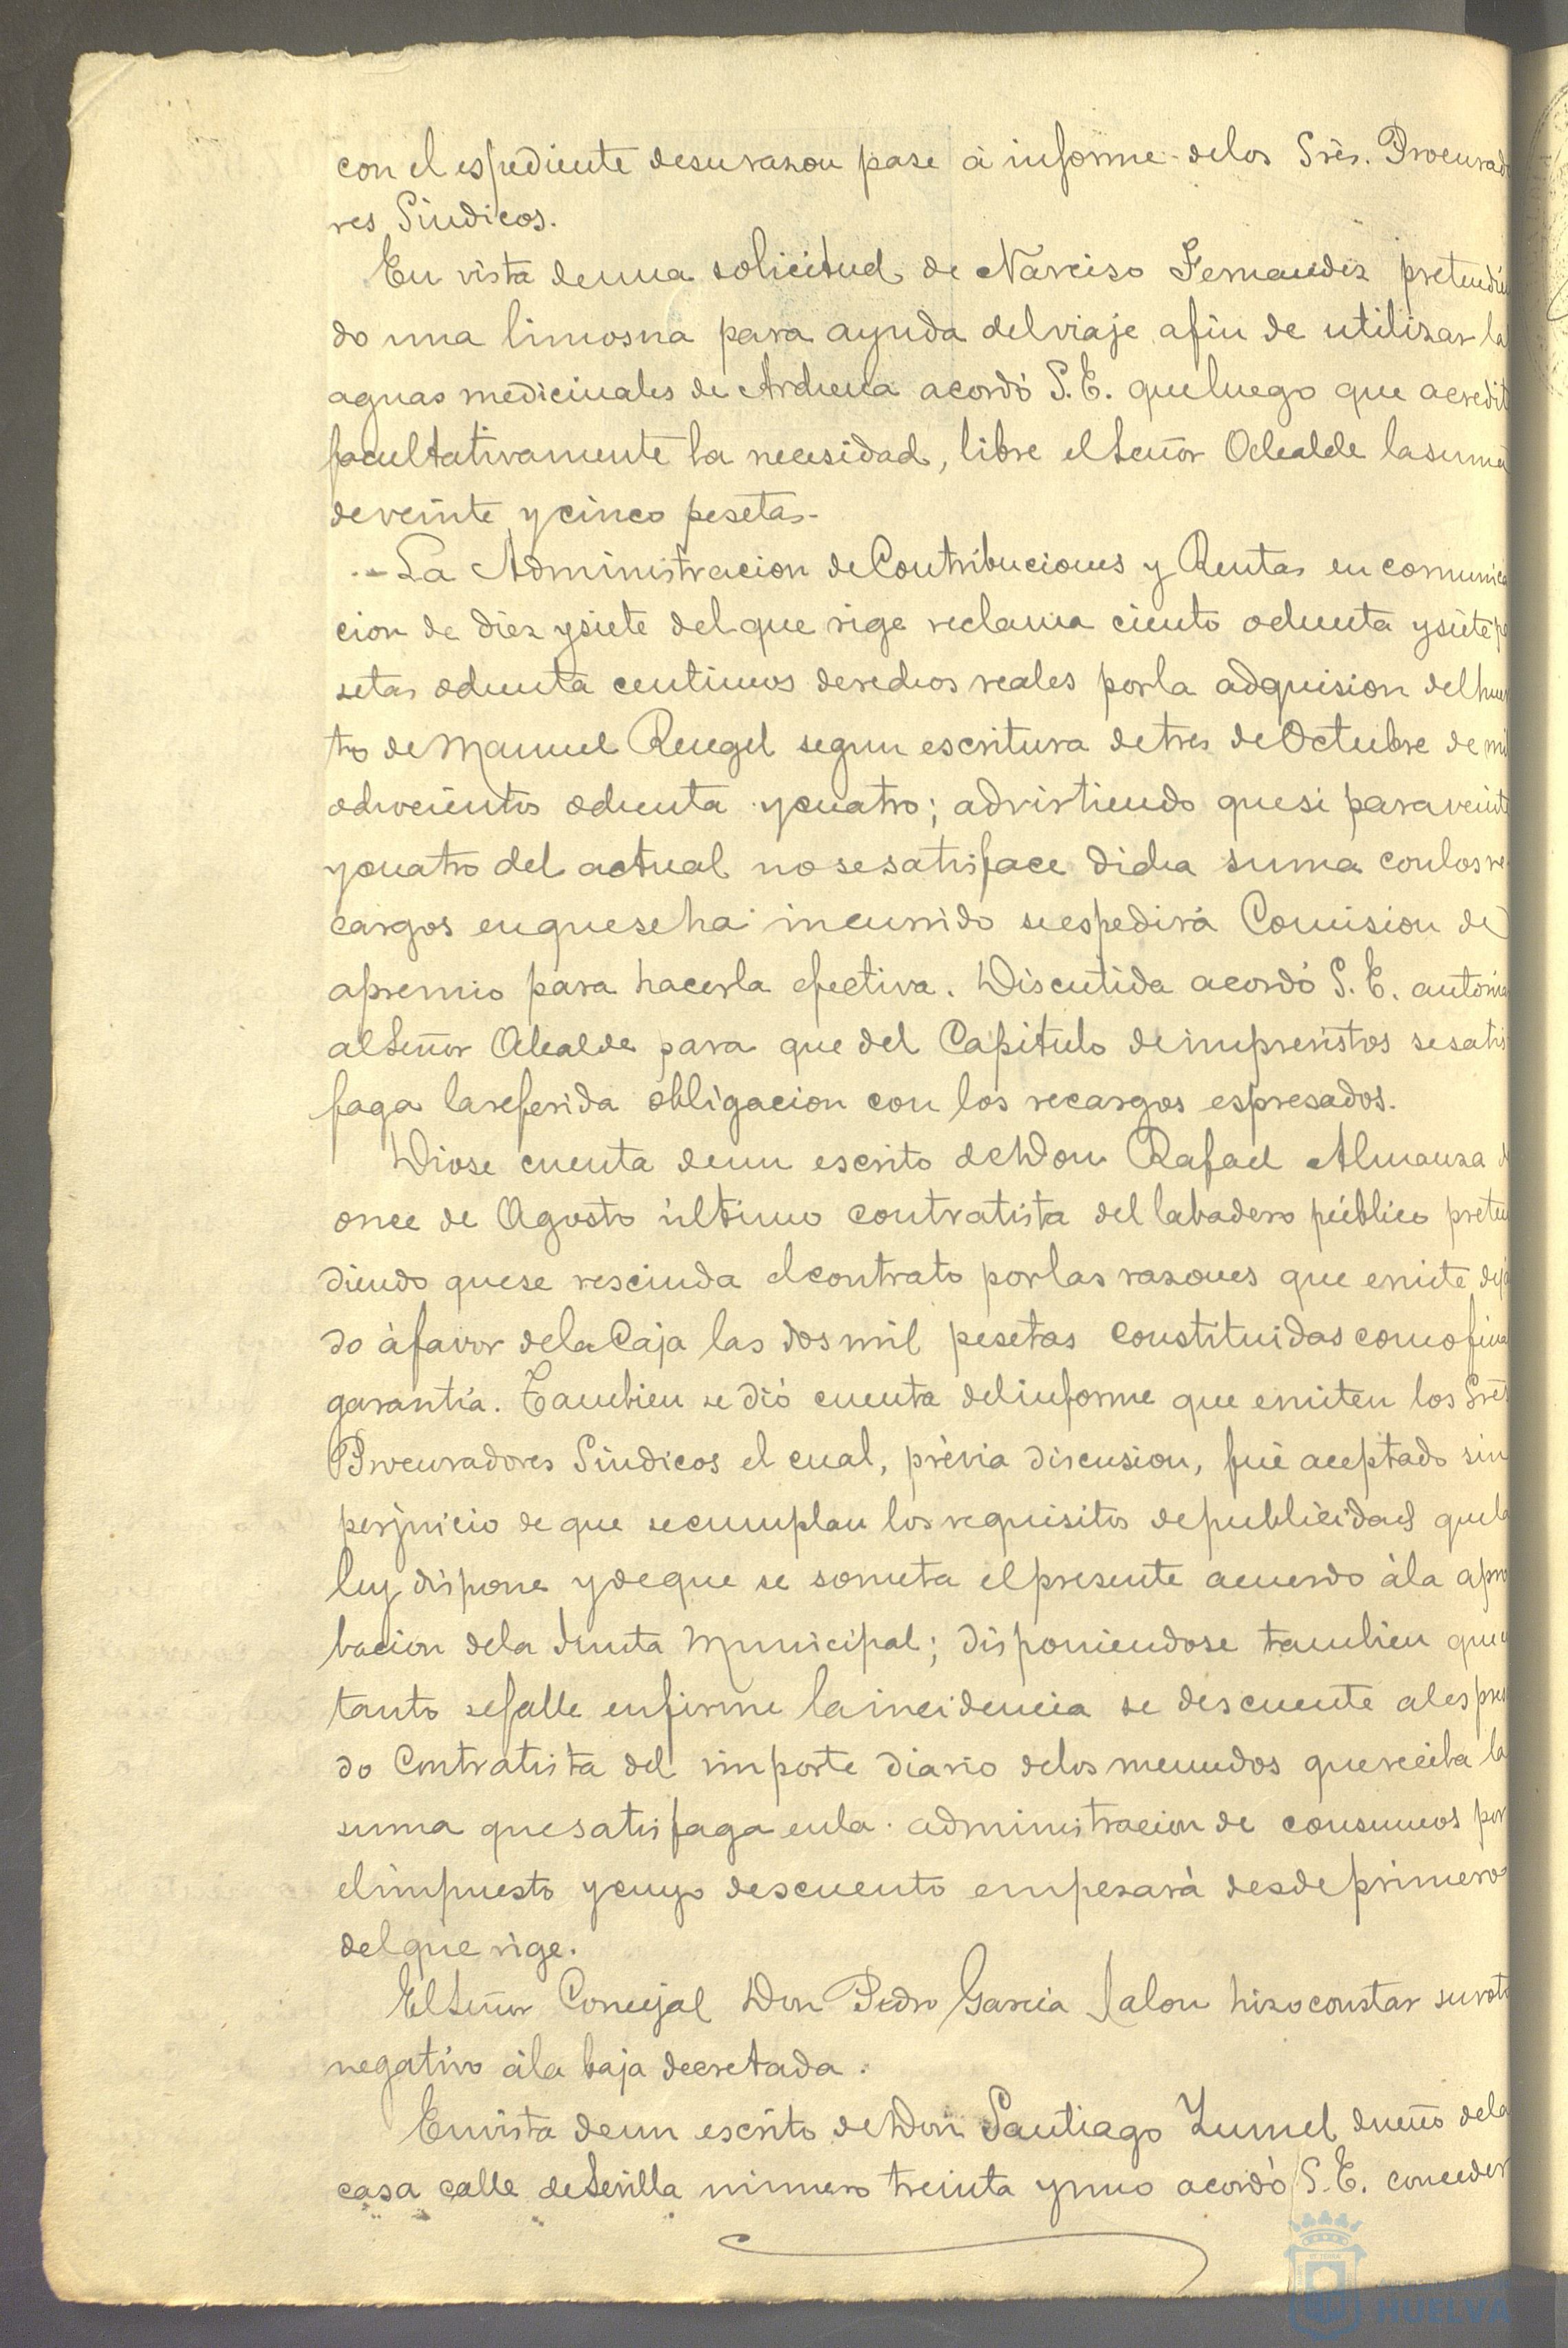 con el espediente desurazon pase á informe delos Srès. Procurad
res Sindicos.
En vista deuna solicitud de Narciso Fernandez pretendién
do una limosna para ayuda delviaje afin de utilizar la
aguas medicinales de Archena acordó S.E. queluego que acredit
facultativamente la necesidad, libre elSeñor Alcalde lasuma
deveinte ycinco pesetas-
La Administracion deContribuciones y Rentas en comunica
cion de diez ysiete delque rige reclama ciento ochenta ysiete pe
setas ochenta centimos derechos reales porla adquision delhuer
to deManuel Rengel segun escritura detres deOctubre de mil
ochocientos ochenta ycuatro; advirtiendo quesi paraveinte
ycuatro del actual nosesatisface dicha suma conlosre
cargos enqueseha incurrido seespedirá Comision de
apremio para hacerla efectiva. Discutida acordó S.E. autoriza
alSeñor Alcalde para que del Capitulo deimprevistos sesatis
faga lareferida obligacion con los recargos espresados.
Diose cuenta deun escrito deDon Rafael Almanza d
once de Agosto último contratista del labadero público preten
diendo quese rescinda elcontrato porlas razones que emite deja
do áfavor delaCaja las dosmil pesetas constituidas comofina
garantía. Tambien se dió cuenta delinforme que emiten los Srès
Procuradores Sindicos el cual, prévia discusion, fué aceptado sin
perjuicio de que secumplan losrequisitos depublicidad quela
ley dispone ydeque se someta elpresente acuerdo ála apro
bacion dela Junta Municipal; disponiendose tambien que
tanto sefalle enfirme laincidencia se descuente alespresa
do Contratista del importe diario delos menudos quereciba la
suma quesatisfaga enla administracion de consumos por
elimpuesto ycuyo descuento empezará desdeprimero
delque rige.
ElSeñor Concejal Don Pedro Garcia Jalon hizoconstar suvoto
negativo ála baja decretada.
Envista deun escrito deDon Santiago Zumel dueño dela
casa calle deSevilla número treinta yuno acordó S.E. conceder
HUELVA